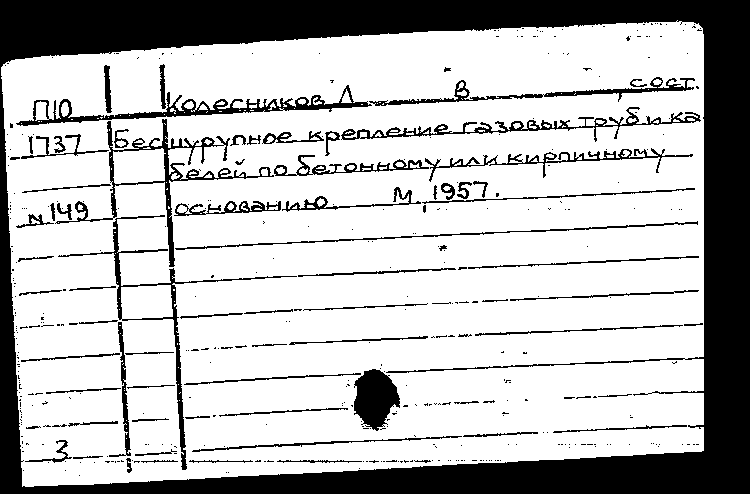 П10 Колесников, Л В , сост.
1737 Бесшурупное крепление газовых труб и ка
белей по бетонному или кирпичному
N149 основанию. М., 1957.
3